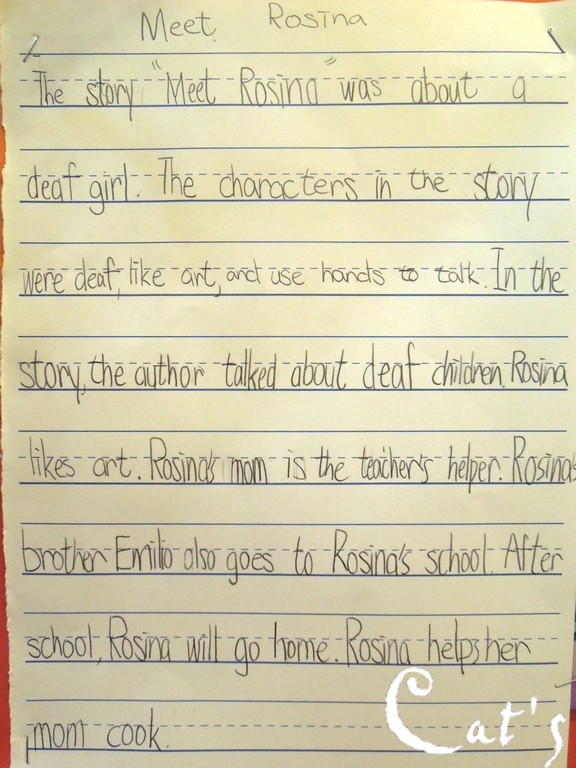 Meet Rosina
The story "Meet Rosina" was about a
deaf girl. The characters in the story
were deaf, like art, and use hands to talk. In the
story, the author talked about deaf children. Rosina
likes art. Rosina's mom is the teacher's helper. Rosina's
brother Emilio also goes to Rosina's school. After
school, Rosina will go home. Rosina helps her
mom cook.
Cat's